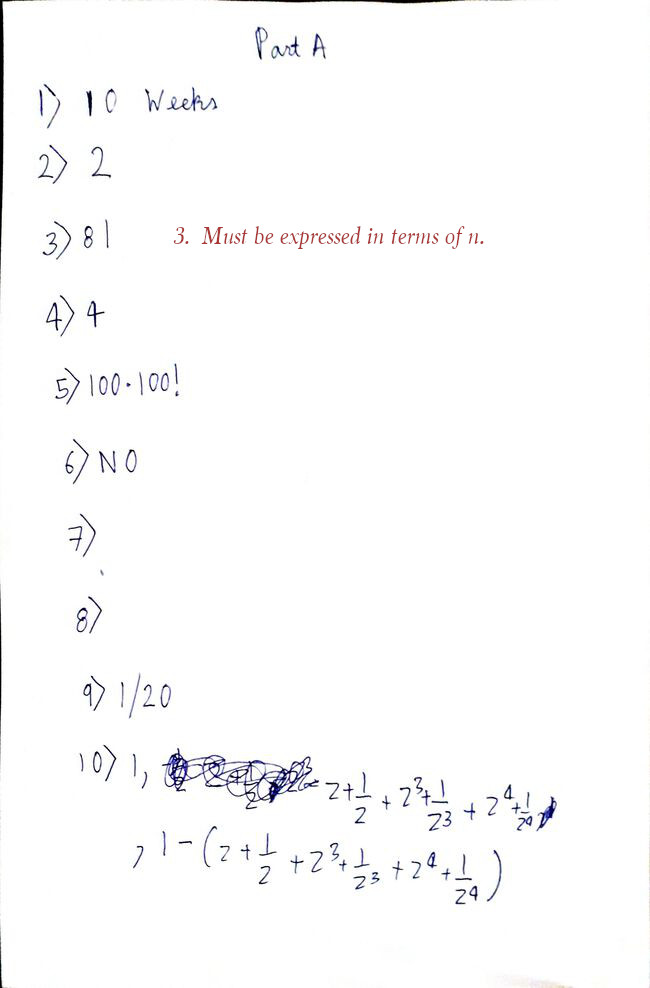 Part A
1) 10 Weeks
2) 2
3) 81 3. Must be expressed in terms of n.
4) 4
5) 100·100!
6) NO
7)
8)
9) 1/20
10) 1, 2+1/2 + 2³+1/2³ + 2⁴+1/2⁴
, 1-(2+1/2 + 2³+1/2³ + 2⁴+1/2⁴)